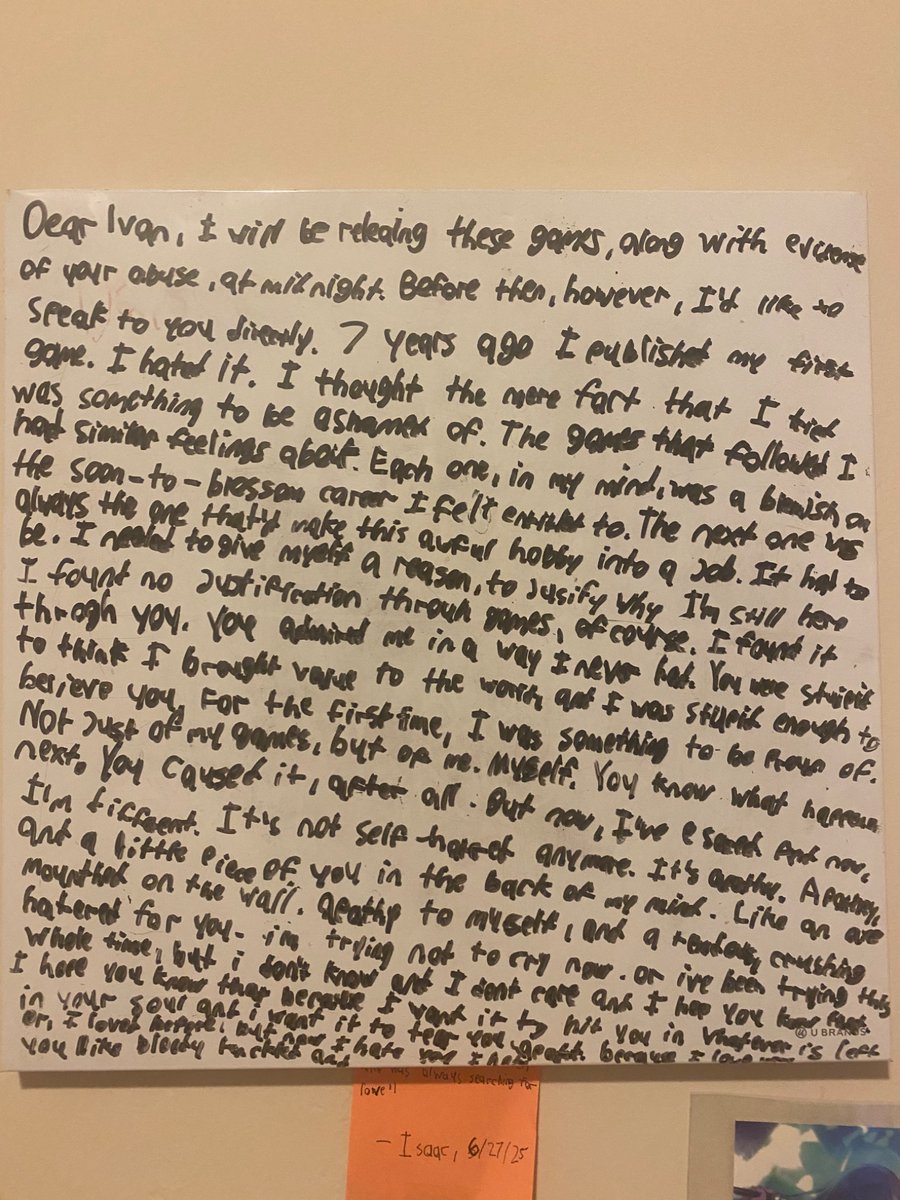 Dear Ivan, I will be releaing these games, along with evidence
of your abuse, at midnight. Before then, however, I'd like to
speak to you directly. 7 years ago I published my first
game. I hated it. I thought the mere fact that I tried
was something to be ashamed of. The games that followed I
had similar feelings about. Each one, in my mind, was a blemish on
the soon-to-blossom career I felt entitled to. The next one was
always the one that'd make this awful hobby into a Job. It had to
be. I needed to give myself a reason, to Jusify why I'm still here
I found no Justification through games, of course. I found it
throgh you. You admired me in a way I never had. You were stupid
to think I brought value to the world, and I was stupid enough to
believe you. For the first time, I was something to be Proud of.
Not Just of my games, but of me. Myself. You know what happened
next. You caused it, after all. But now, I've escaped And now,
I'm different. It's not self hatred anymore. It's apathy. Apathy,
and a little piece of you in the back of my mind. Like an axe
mounted on the wall. Apathy to myself, and a crushing
hatered for you. im trying not to cry now. or ive been trying this
whole time, but i don't know and I dont care and I hope you know that
I hope you know that because I want it to hit you in whatever's left
in your soul and i want it to tear you apart. because I
I loved before, but now I hate you I
you like bloody and
U BRANDS
was always searching for
love"
- Isaac, 6/27/25